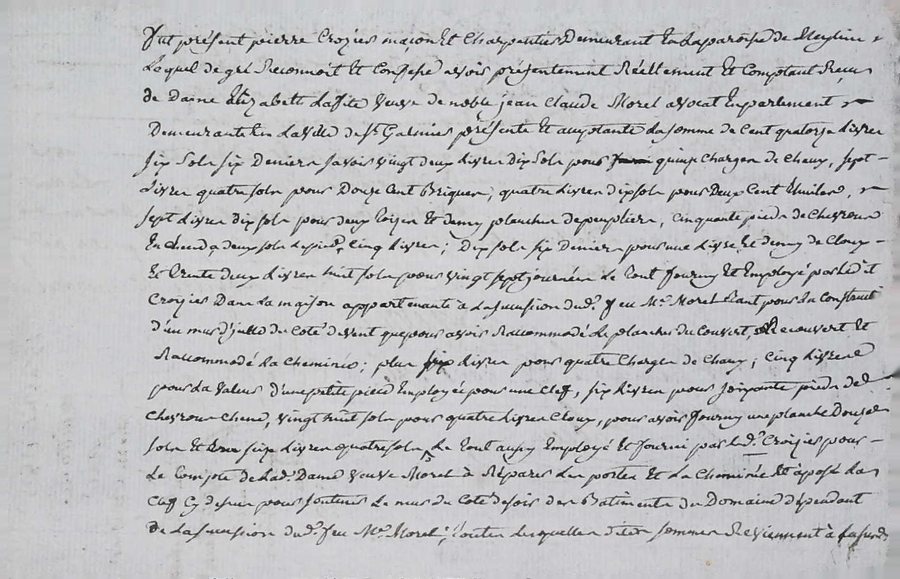 fut présent pierre Crozier macon et Charpentier Demeurant En Laparoisse de
Lequel de gré Reconnoit Et Confesse avoir présentement Réellement Et Comptant Receu
de Dame Elizabeth Lafite veuve de noble jean Claude Morel avocat En parlement
Demeurante En La ville de St Galmier présente Et acceptante La somme de Cent quatorze Livres
six sols six Deniers savoir vingt deux Livres Dix sols pour quinze Charges de Chaux, sept
Livres quatre sols pour Douze Cent Briques, quatre Livres dix sols pour Deux Cent thuiles,
sept Livres Dix sols pour deux toises Et demy plancher de peuplier, cinquante pieds de Chevrons
En chene a deux sols Le pied, Cinq Livres; Dix sols six Deniers pour une Livre Et demy de Cloux
Et Trente deux Livres huit sols pour vingt sept journées Le tout fourny Et Employé par Ledit
Crozier Dans La maison appartenante à La succession dud. feu Mr. Morel tant pour La Construction
d'un mur du Coté devent que pour avoir Raccommodé Le plancher Du Couvert, Recouvert Et
Raccommodé La Cheminée; plus six Livres pour quatre Charges de Chaux; Cinq Livres
pour La valeur d'une petite piece Employée pour une Clef, six Livres pour soixante pieds de
Chevrons Chene, vingt huit sols pour quatre Livres Cloux, pour avoir fourny une planche Douze
sols Et six Livres quatre sols Le tout aussy Employé Et fourni par Led. Crozier pour
Le Compte de Lad. Dame veuve Morel à Réparer Les portes Et La Cheminée Et à posé La
Clef Cy dessus pour soutenir Le mur du Coté de soir des Batiments du Domaine dépendant
de La succession dud. feu Mr. Morel; toutes Lesquelles dites sommes Reviennent à La susd.